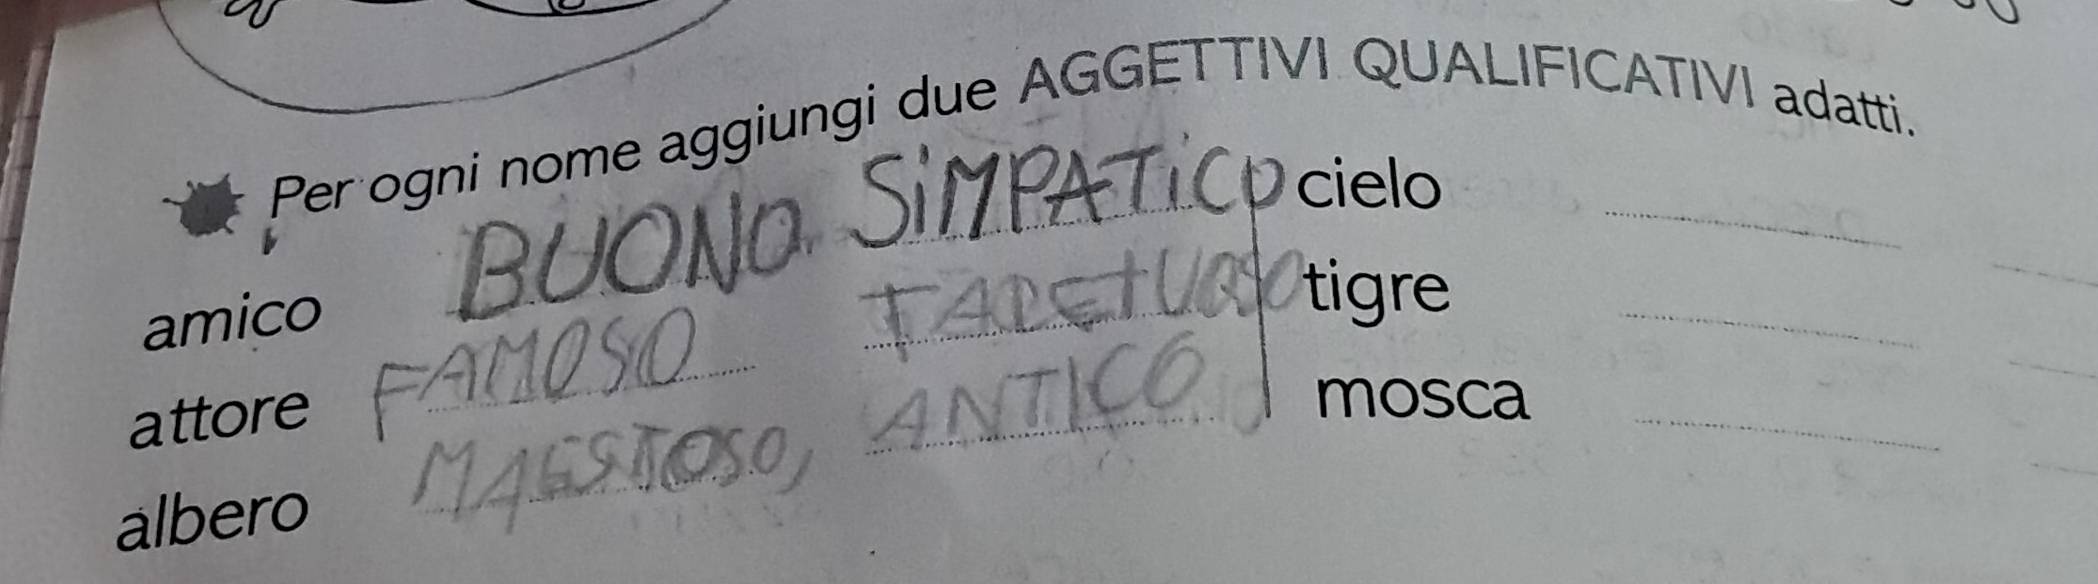 Per ogni nome aggiungi due AGGETTIVI QUALIFICATIVI adatti.
amico BUONO SiMPATiCO
attore FAMOSO
albero MAESTOSO, ANTICO
cielo
tigre
mosca